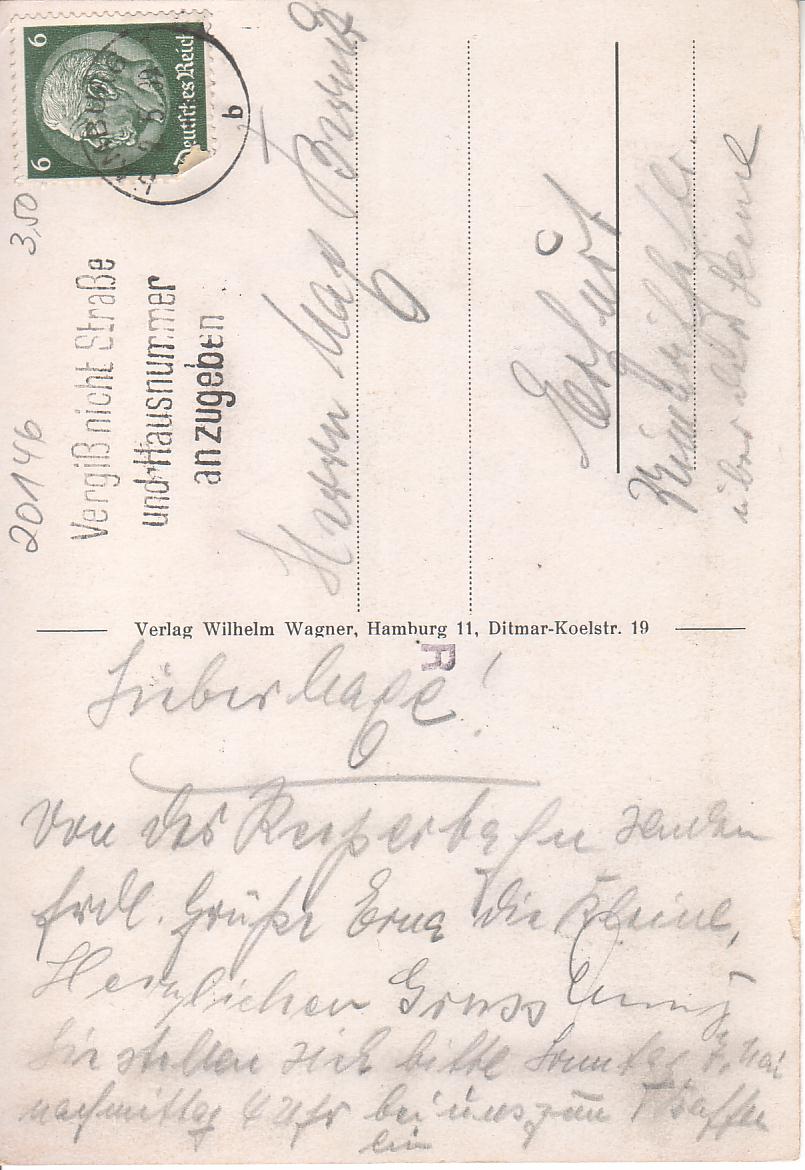 6 6
Deutsches Reich
HAMBURG
2.5.39
b
3,50
20146
Vergiß nicht Straße
und Hausnummer
anzugeben
Herrn Max
Erfurt
über
Verlag Wilhelm Wagner, Hamburg 11, Ditmar-Koelstr. 19
R
Lieber Maxe!
Von der Reeperbahn senden
frdl. Grüße Erna die Kleine,
Herzlichen Gruss
Sie stellen sich bitte Sonntag 7. Mai
nachmittag 4 Uhr bei uns zum Kaffee
ein